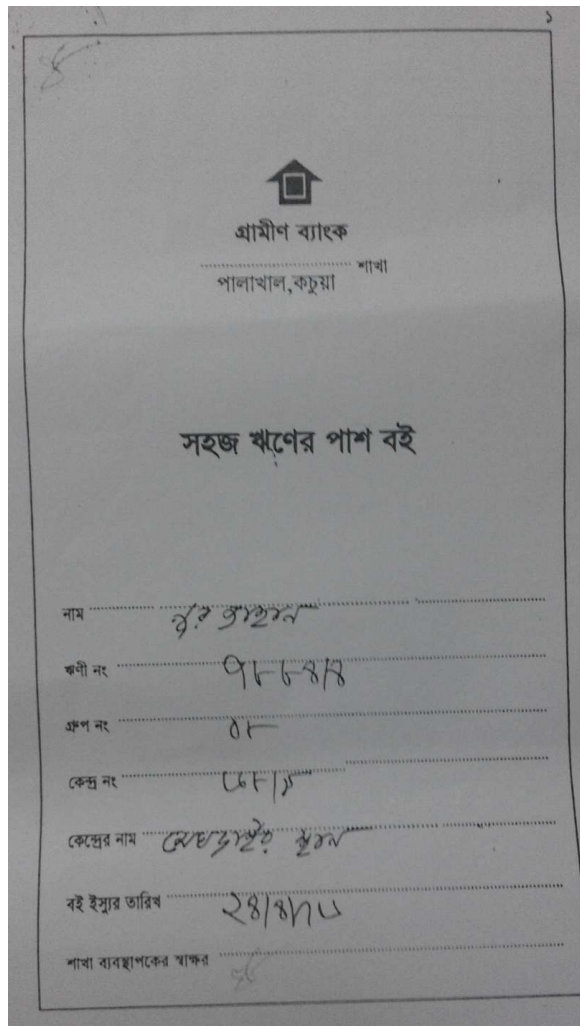 ১
গ্রামীণ ব্যাংক
শাখা
পালাখাল,কচুয়া
সহজ ঋণের পাশ বই
নাম নুর জাহান
ঋণী নং ৭৮৮৪/৪
গ্রুপ নং ০৮
কেন্দ্র নং
কেন্দ্রের নাম
বই ইস্যুর তারিখ ২৪/৪/১৬
শাখা ব্যবস্থাপকের স্বাক্ষর